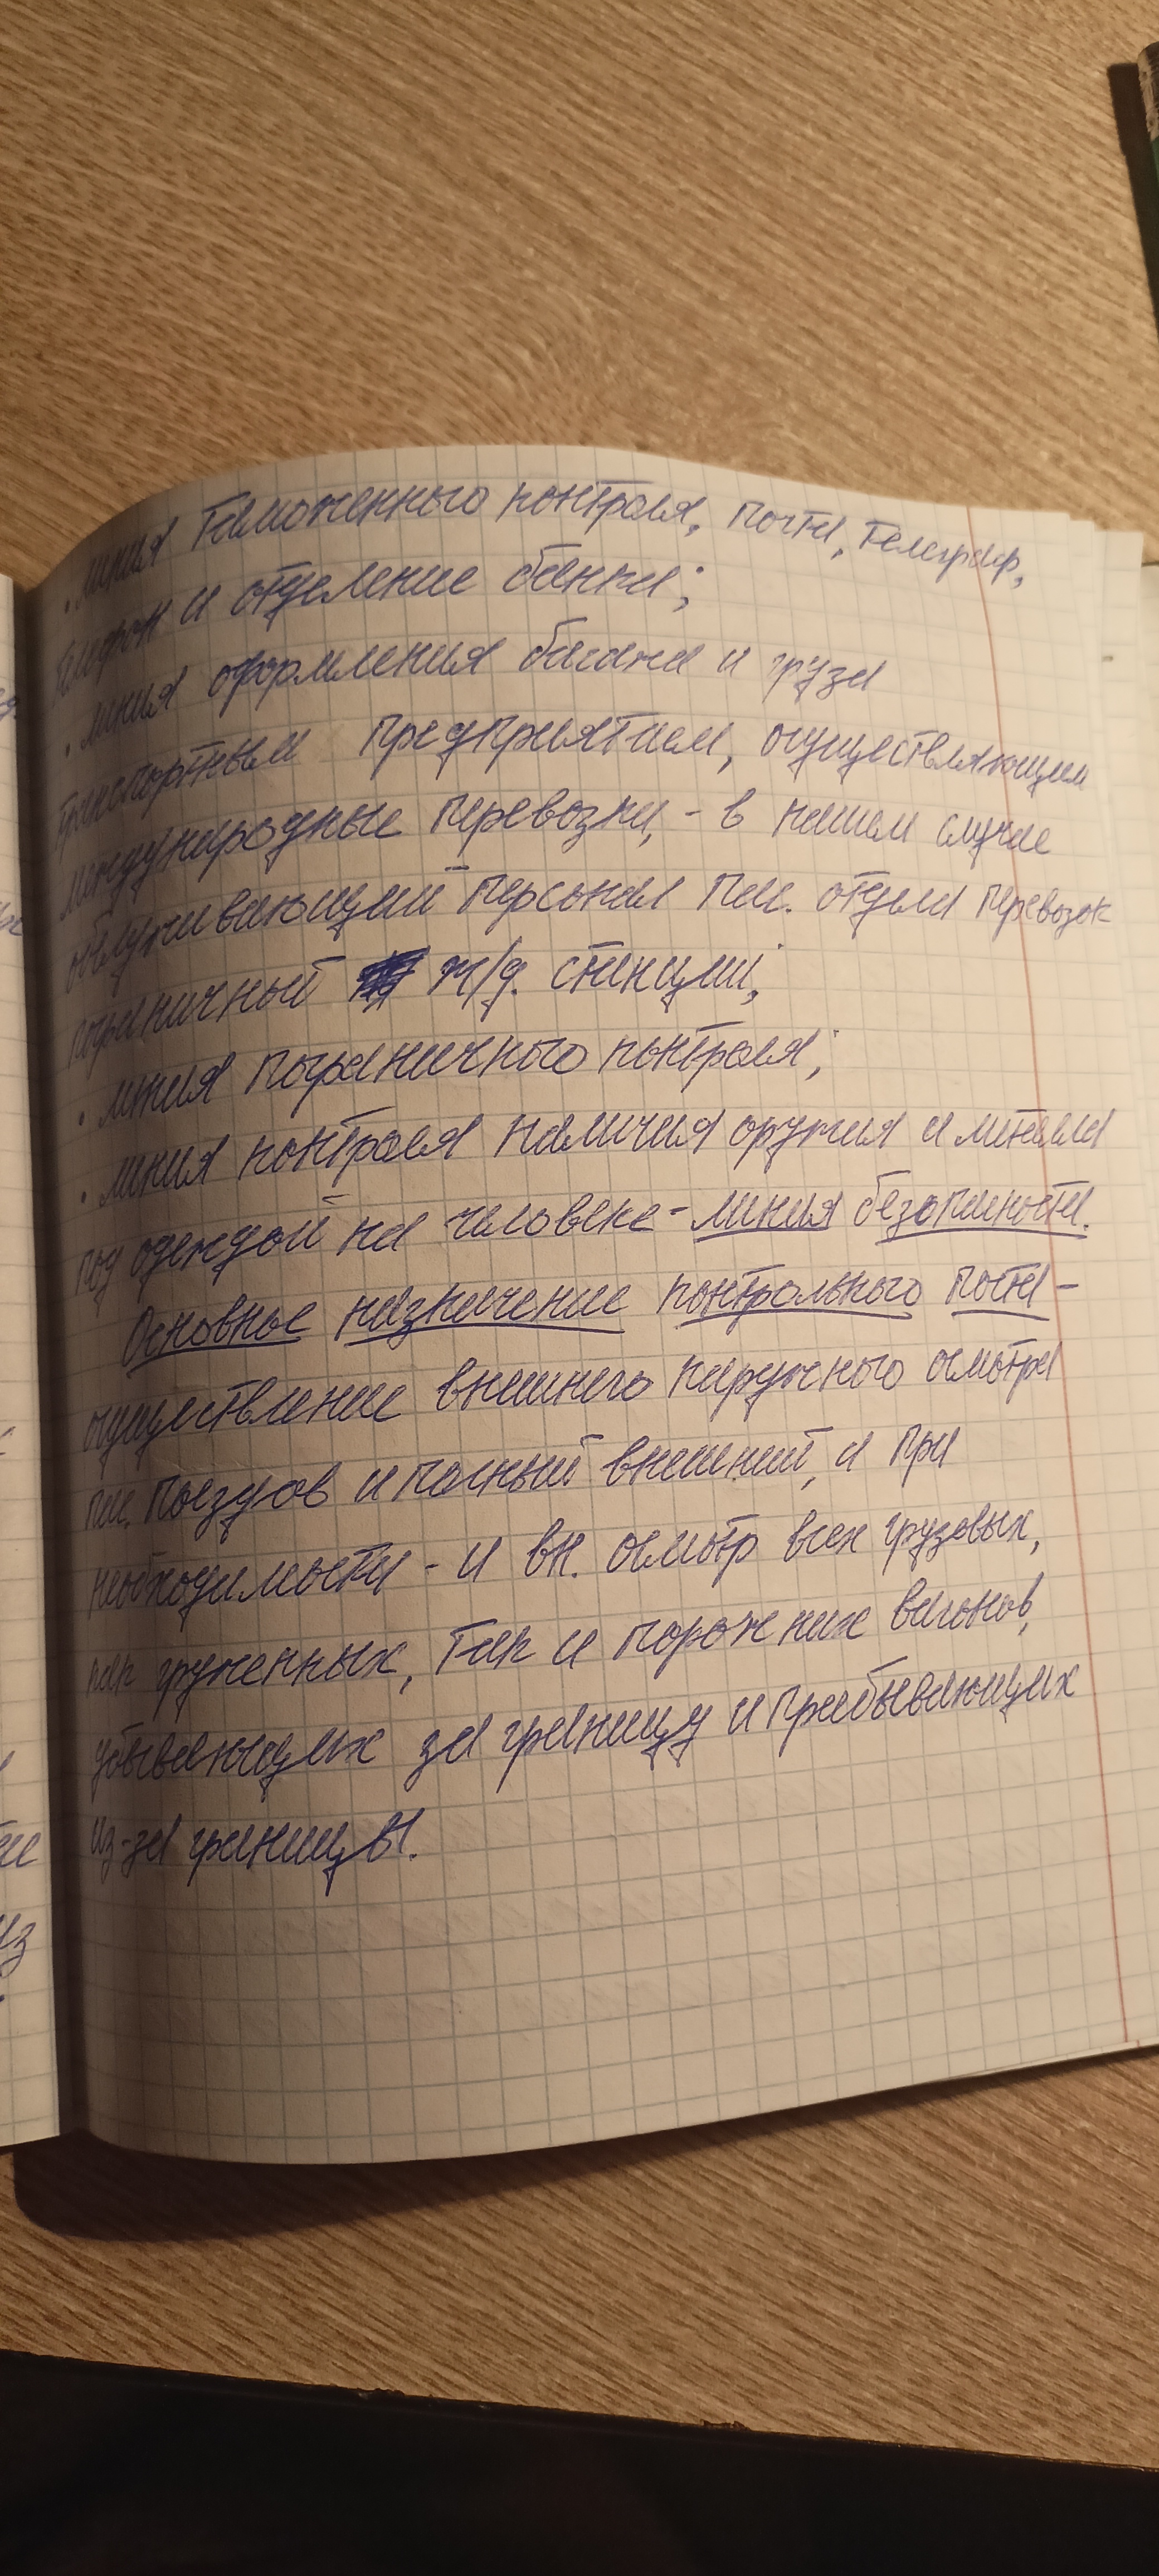 · линия таможенного контроля, почта, телеграф,
телефон и отделение банка;
· линия оформления багажа и груза
транспортным предприятием, осуществляющим
международные перевозки, - в нашем случае
обслуживающий персонал пас. отдела перевозок
пограничный ж/д. станций;
· линия пограничного контроля;
· линия контроля наличия оружия и металла
под одеждой на человеке - линия безопасности.
Основное назначение контрольного поста -
осуществление внешнего наружного осмотра
пас. поездов и полный внешний, а при
необходимости - и вн. осмотр всех грузовых,
как груженных, так и порожних вагонов,
убывающих за границу и прибывающих
из-за границы.